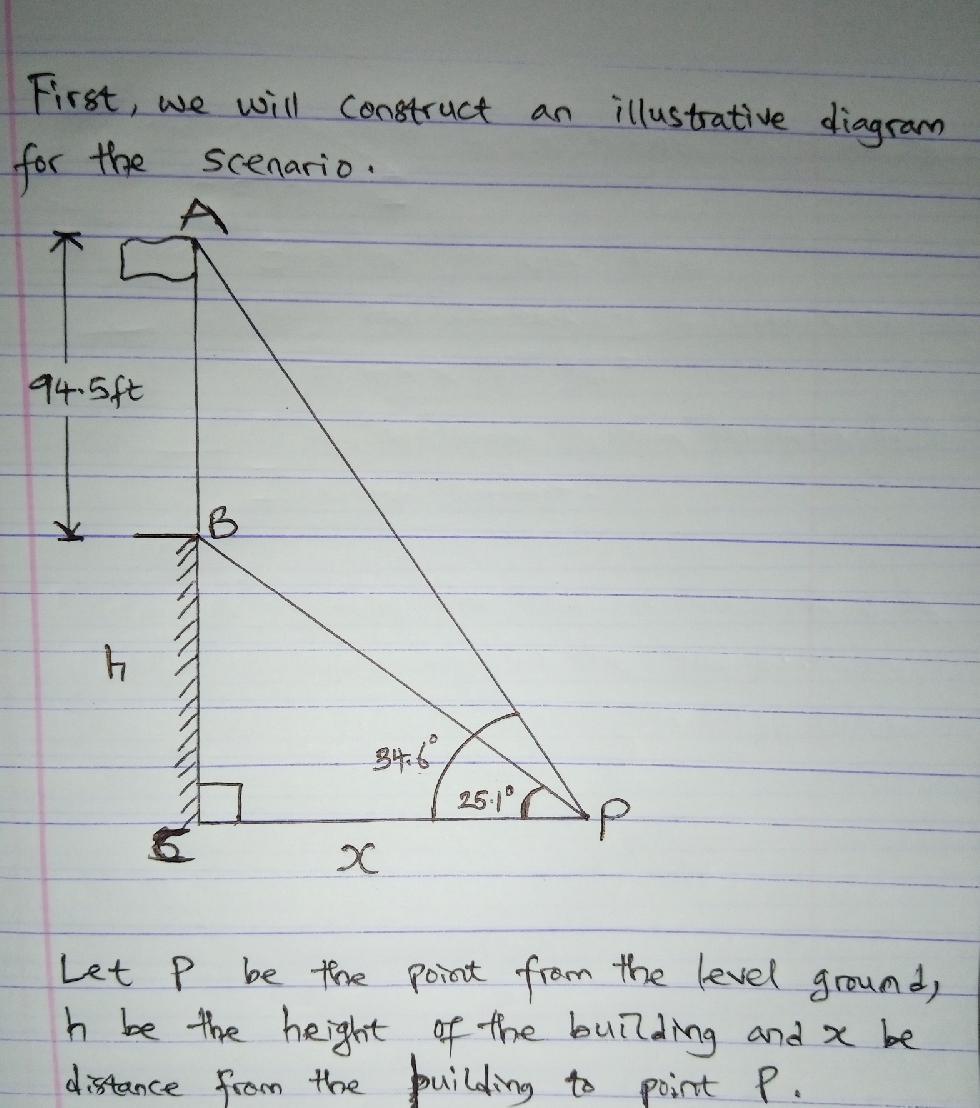 First, we will construct an illustrative diagram
for the scenario.
A
94.5ft
B
h
34.6°
25.1°
P
C
x
Let P be the point from the level ground,
h be the height of the building and x be
distance from the building to point P.